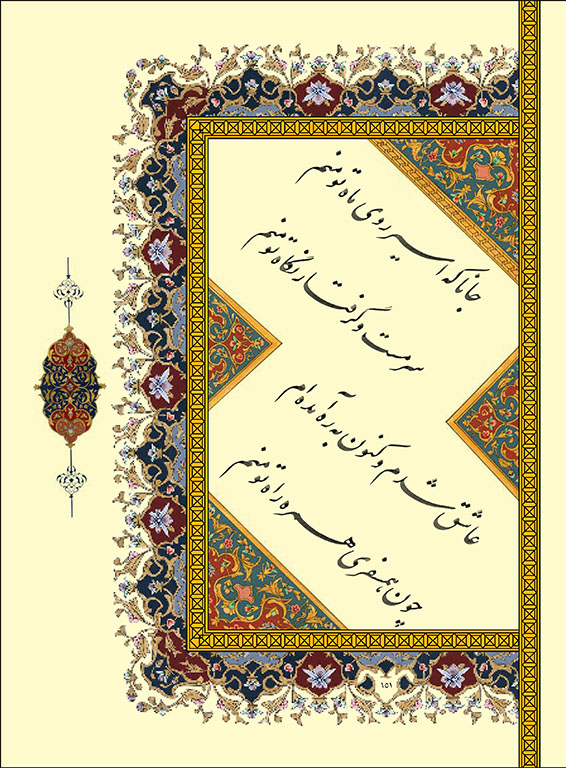 جانا که اسیر روی ماه تو منم
سرمست و گرفتار نگاه تو منم
عاشق شدم و کنون به راه آمده‌ام
چون همسفری همره راه تو منم
۱۵۱